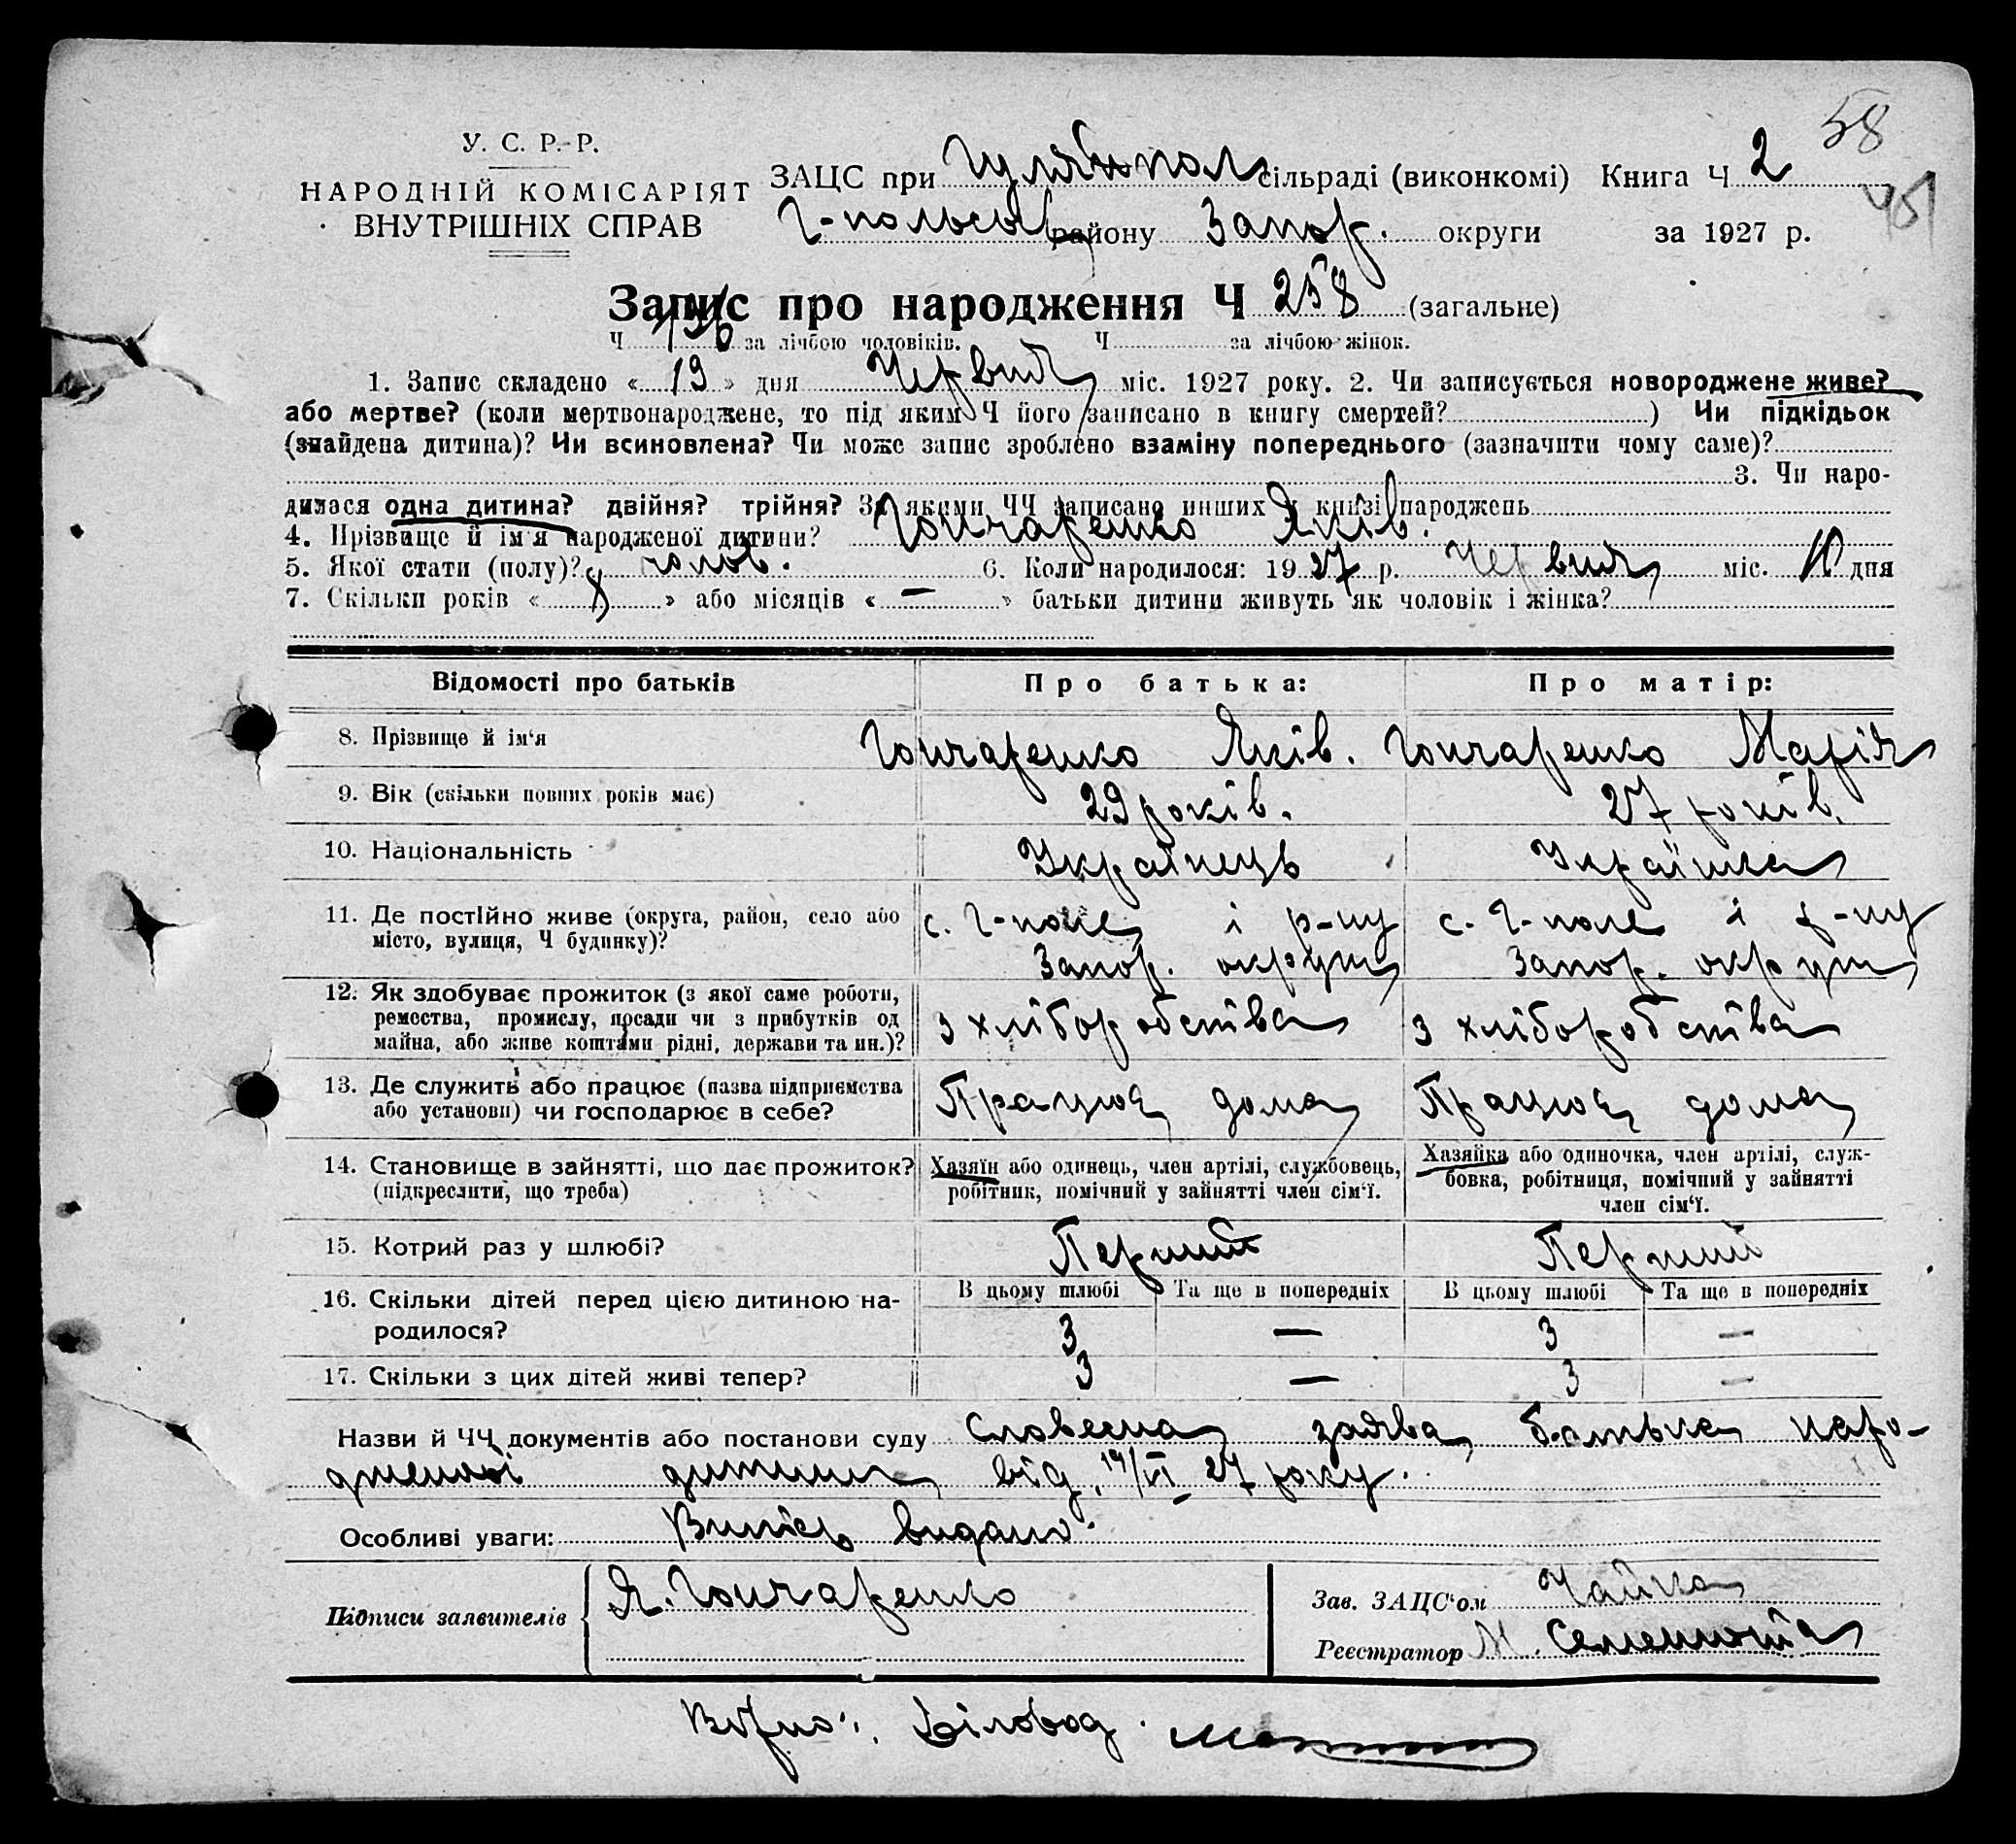 58
У. С. Р.-Р.
НАРОДНІЙ КОМІСАРІЯТ
ВНУТРІШНІХ СПРАВ
ЗАЦС при Гуляйпол сільраді (виконкомі) Книга Ч 2
451
Г-польськ району Запор. округи за 1927 р.
Запис про народження Ч 258 (загальне)
Ч 136 за лічбою чоловіків. Ч за лічбою жінок.
1. Запис складено « 19 » дня Червня міс. 1927 року. 2. Чи записується новороджене живе?
або мертве? (коли мертвонароджене, то під яким Ч його записано в книгу смертей? ) Чи підкідьок
(знайдена дитина)? Чи всиновлена? Чи може запис зроблено взаміну попереднього (зазначити чому саме)?
3. Чи наро-
дилася одна дитина? двійня? трійня? За якими ЧЧ записано инших у книзі народжень
4. Прізвище й ім'я народженої дитини? Гончаренко Яків.
5. Якої стати (полу)? чолов. 6. Коли народилося: 1927 р. Червня міс. 10 дня
7. Скільки років « 8 » або місяців « — » батьки дитини живуть як чоловік і жінка?
Відомості про батьків Про батька: Про матір:
8. Прізвище й ім'я Гончаренко Яків. Гончаренко Марія
9. Вік (скільки повних років має) 29 років. 27 років.
10. Національність Українець Українка
11. Де постійно живе (округа, район, село або с. Г-поле і р-ну с. Г-поле і р-ну
місто, вулиця, Ч будинку)? Запор. округи Запор. округи
12. Як здобуває прожиток (з якої саме роботи,
ремества, промислу, посади чи з прибутків од з хліборобства з хліборобства
майна, або живе коштами рідні, держави та ин.)?
13. Де служить або працює (назва підприємства Працює дома Працює дома
або установи) чи господарює в себе?
14. Становище в зайнятті, що дає прожиток? Хазяїн або одинець, член артілі, службовець, Хазяйка або одиночка, член артілі, служ-
(підкреслити, що треба) робітник, помічний у зайнятті член сім'ї. бовка, робітниця, помічний у зайнятті
член сім'ї.
15. Котрий раз у шлюбі? Перший Перший
16. Скільки дітей перед цією дитиною на- В цьому шлюбі Та ще в попередніх В цьому шлюбі Та ще в попередніх
родилося? 3 — 3 —
17. Скільки з цих дітей живі тепер? 3 — 3 —
Назви й ЧЧ документів або постанови суду Словесна заява батька наро-
дженої дитини від 19/VI 27 року.
Особливі уваги: Випісь видано.
Підписи заявителів Я. Гончаренко Зав. ЗАЦС'ом Чайка
Реєстратор М.
Вірно: Діловод.